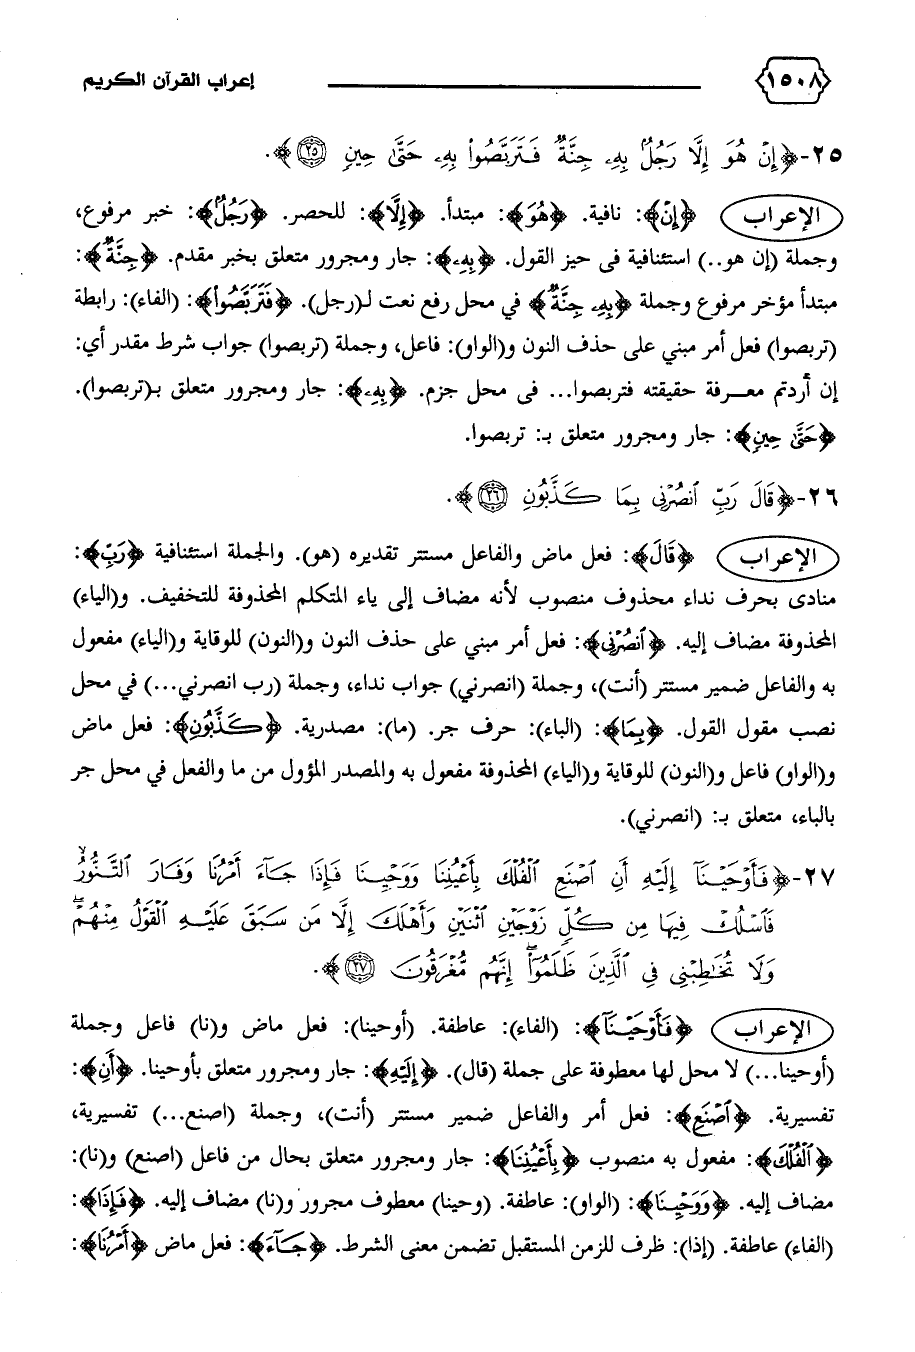 ١٥٠٨ إعراب القرآن الكريم
٢٥-﴿إِنْ هُوَ إِلَّا رَجُلٌۢ بِهِۦ جِنَّةٌ فَتَرَبَّصُوا۟ بِهِۦ حَتَّىٰ حِينٍ ٢٥﴾.
الإعراب ﴿إِنْ﴾: نافية. ﴿هُوَ﴾: مبتدأ. ﴿إِلَّا﴾: للحصر. ﴿رَجُلٌۢ﴾: خبر مرفوع،
وجملة (إن هو..) استئنافية في حيز القول. ﴿بِهِۦ﴾: جار ومجرور متعلق بخبر مقدم. ﴿جِنَّةٌ﴾:
مبتدأ مؤخر مرفوع وجملة ﴿بِهِۦ جِنَّةٌ﴾ في محل رفع نعت لـ(رجل). ﴿فَتَرَبَّصُوا۟﴾: (الفاء): رابطة
(تربصوا) فعل أمر مبني على حذف النون و(الواو): فاعل، وجملة (تربصوا) جواب شرط مقدر أي:
إن أردتم معرفة حقيقته فتربصوا... في محل جزم. ﴿بِهِۦ﴾: جار ومجرور متعلق بـ(تربصوا).
﴿حَتَّىٰ حِينٍ﴾: جار ومجرور متعلق بـ: تربصوا.
٢٦-﴿قَالَ رَبِّ ٱنصُرْنِى بِمَا كَذَّبُونِ ٢٦﴾.
الإعراب ﴿قَالَ﴾: فعل ماض والفاعل مستتر تقديره (هو). والجملة استئنافية ﴿رَبِّ﴾:
منادى بحرف نداء محذوف منصوب لأنه مضاف إلى ياء المتكلم المحذوفة للتخفيف. و(الياء)
المحذوفة مضاف إليه. ﴿ٱنصُرْنِى﴾: فعل أمر مبني على حذف النون و(النون) للوقاية و(الياء) مفعول
به والفاعل ضمير مستتر (أنت)، وجملة (انصرني) جواب نداء، وجملة (رب انصرني...) في محل
نصب مقول القول. ﴿بِمَا﴾: (الباء): حرف جر. (ما): مصدرية. ﴿كَذَّبُونِ﴾: فعل ماض
و(الواو) فاعل و(النون) للوقاية و(الياء) المحذوفة مفعول به والمصدر المؤول من ما والفعل في محل جر
بالباء، متعلق بـ: (انصرني).
٢٧-﴿فَأَوْحَيْنَآ إِلَيْهِ أَنِ ٱصْنَعِ ٱلْفُلْكَ بِأَعْيُنِنَا وَوَحْيِنَا فَإِذَا جَآءَ أَمْرُنَا وَفَارَ ٱلتَّنُّورُ ۙ
فَٱسْلُكْ فِيهَا مِن كُلٍّ زَوْجَيْنِ ٱثْنَيْنِ وَأَهْلَكَ إِلَّا مَن سَبَقَ عَلَيْهِ ٱلْقَوْلُ مِنْهُمْ ۖ
وَلَا تُخَـٰطِبْنِى فِى ٱلَّذِينَ ظَلَمُوٓا۟ ۖ إِنَّهُم مُّغْرَقُونَ ٢٧﴾.
الإعراب ﴿فَأَوْحَيْنَآ﴾: (الفاء): عاطفة. (أوحينا): فعل ماض و(نا) فاعل وجملة
(أوحينا...) لا محل لها معطوفة على جملة (قال). ﴿إِلَيْهِ﴾: جار ومجرور متعلق بأوحينا. ﴿أَنِ﴾:
تفسيرية. ﴿ٱصْنَعِ﴾: فعل أمر والفاعل ضمير مستتر (أنت)، وجملة (اصنع...) تفسيرية،
﴿ٱلْفُلْكَ﴾: مفعول به منصوب ﴿بِأَعْيُنِنَا﴾: جار ومجرور متعلق بحال من فاعل (اصنع) و(نا):
مضاف إليه. ﴿وَوَحْيِنَا﴾: (الواو): عاطفة. (وحينا) معطوف مجرور و(نا) مضاف إليه. ﴿فَإِذَا﴾:
(الفاء) عاطفة. (إذا): ظرف للزمن المستقبل تضمن معنى الشرط. ﴿جَآءَ﴾: فعل ماض ﴿أَمْرُنَا﴾: